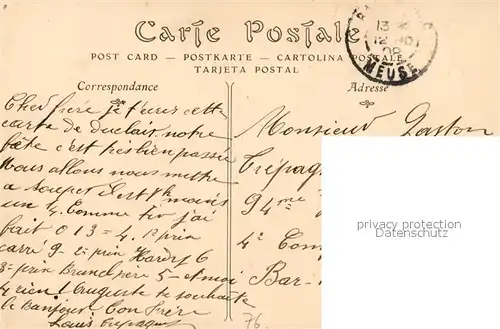 Carte Postale
POST CARD — POSTKARTE — CARTOLINA POSTALE
TARJETA POSTAL
13
12 08
MEUSE
Correspondance
Adresse
Cher frère je t'écris cette
carte de duclair notre
fête c'est très bien passée
Nous allons nous mettre
a souper il est 8h moins
un 1/4. Comme tir j'ai
fait 0 1 3 = 4. 1e prix
carré 9 - 2e prix Hardy 6
3e prix 5 - et moi
4 rien ! Auguste te souhaite
le Bonjour Ton Frère
Louis
Monsieur Gaston
94me
4e Com
Bar-
76
privacy protection
www.ansichtskarten-center.de